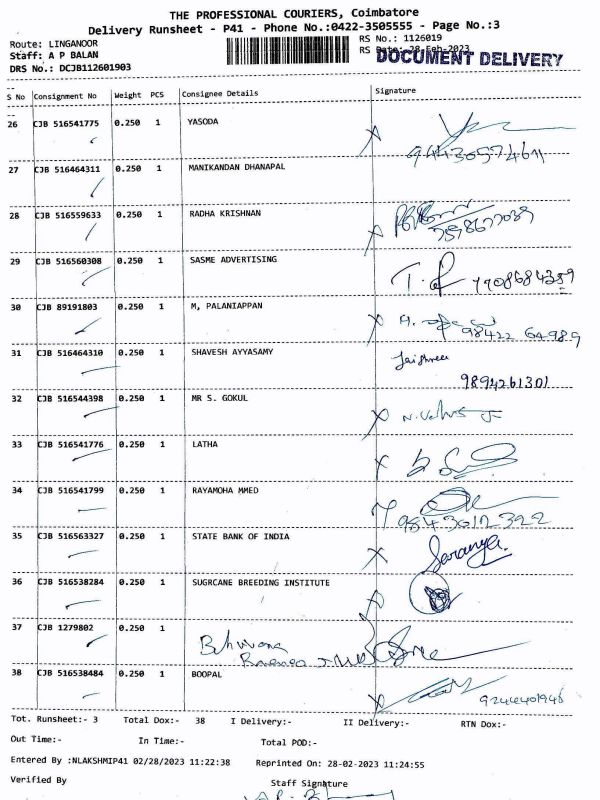 THE PROFESSIONAL COURIERS, Coimbatore
Delivery Runsheet - P41 - Phone No.:0422-3505555 - Page No.:3
Route: LINGANOOR
Staff: A P BALAN
DRS No.: DCJB112601903
RS No.: 1126019
RS Date: 28-Feb-2023
DOCUMENT DELIVERY
S No Consignment No Weight PCS Consignee Details Signature
26 CJB 516541775 0.250 1 YASODA
27 CJB 516464311 0.250 1 MANIKANDAN DHANAPAL
28 CJB 516559633 0.250 1 RADHA KRISHNAN
29 CJB 516560308 0.250 1 SASME ADVERTISING
7708684389
30 CJB 89191803 0.250 1 M, PALANIAPPAN
98422 64989
31 CJB 516464310 0.250 1 SHAVESH AYYASAMY
Jaishree
9894261301
32 CJB 516544398 0.250 1 MR S. GOKUL
33 CJB 516541776 0.250 1 LATHA
34 CJB 516541799 0.250 1 RAYAMOHA MMED
9843012322
35 CJB 516563327 0.250 1 STATE BANK OF INDIA
Saranya.
36 CJB 516538284 0.250 1 SUGRCANE BREEDING INSTITUTE
37 CJB 1279802 0.250 1
38 CJB 516538484 0.250 1 BOOPAL
Tot. Runsheet:- 3 Total Dox:- 38 I Delivery:- II Delivery:- RTN Dox:-
Out Time:- In Time:- Total POD:-
Entered By :NLAKSHMIP41 02/28/2023 11:22:38 Reprinted On: 28-02-2023 11:24:55
Verified By Staff Signature